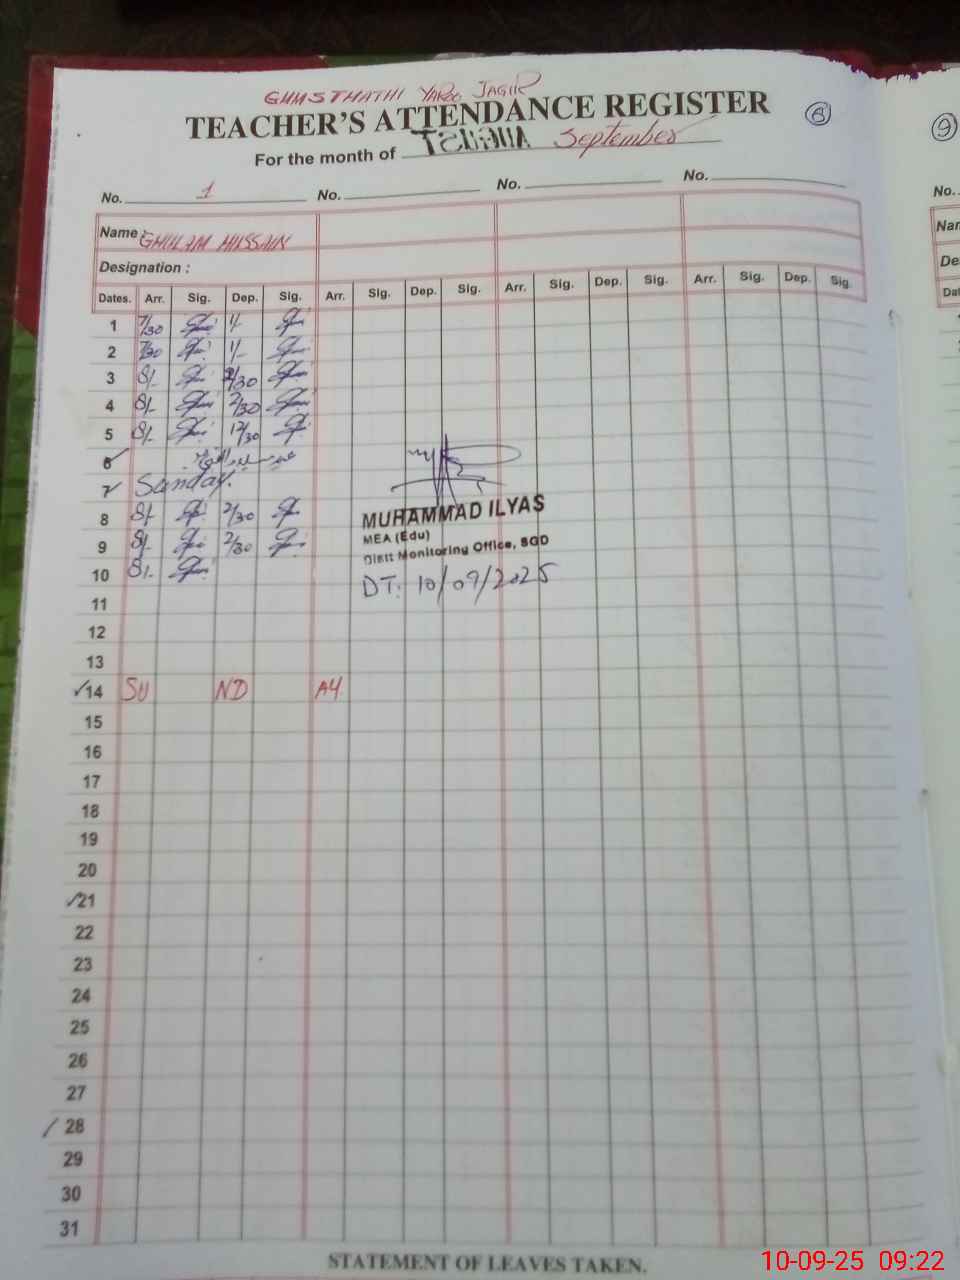 GHMSTMATHI YAROO JAGIR
TEACHER'S ATTENDANCE REGISTER
8
9
For the month of AUGUST September
No. 1 No. No. No.
No.
Name : GHULAM HUSSAIN
Designation :
Dates. Arr. Sig. Dep. Sig. Arr. Sig. Dep. Sig. Arr. Sig. Dep. Sig. Arr. Sig. Dep. Sig.
1 7/30 1/-
2 7/30 1/-
3 8/- 2/30
4 8/- 2/30
5 8/- 12/30
6
7 Sunday.
8 8/- 2/30
9 8/- 2/30
10 8/-
MUHAMMAD ILYAS
MEA (Edu)
Distt Monitoring Office, SGD
DT: 10/09/2025
11
12
13
14 SU ND AY
15
16
17
18
19
20
21
22
23
24
25
26
27
28
29
30
31
STATEMENT OF LEAVES TAKEN.
10-09-25 09:22